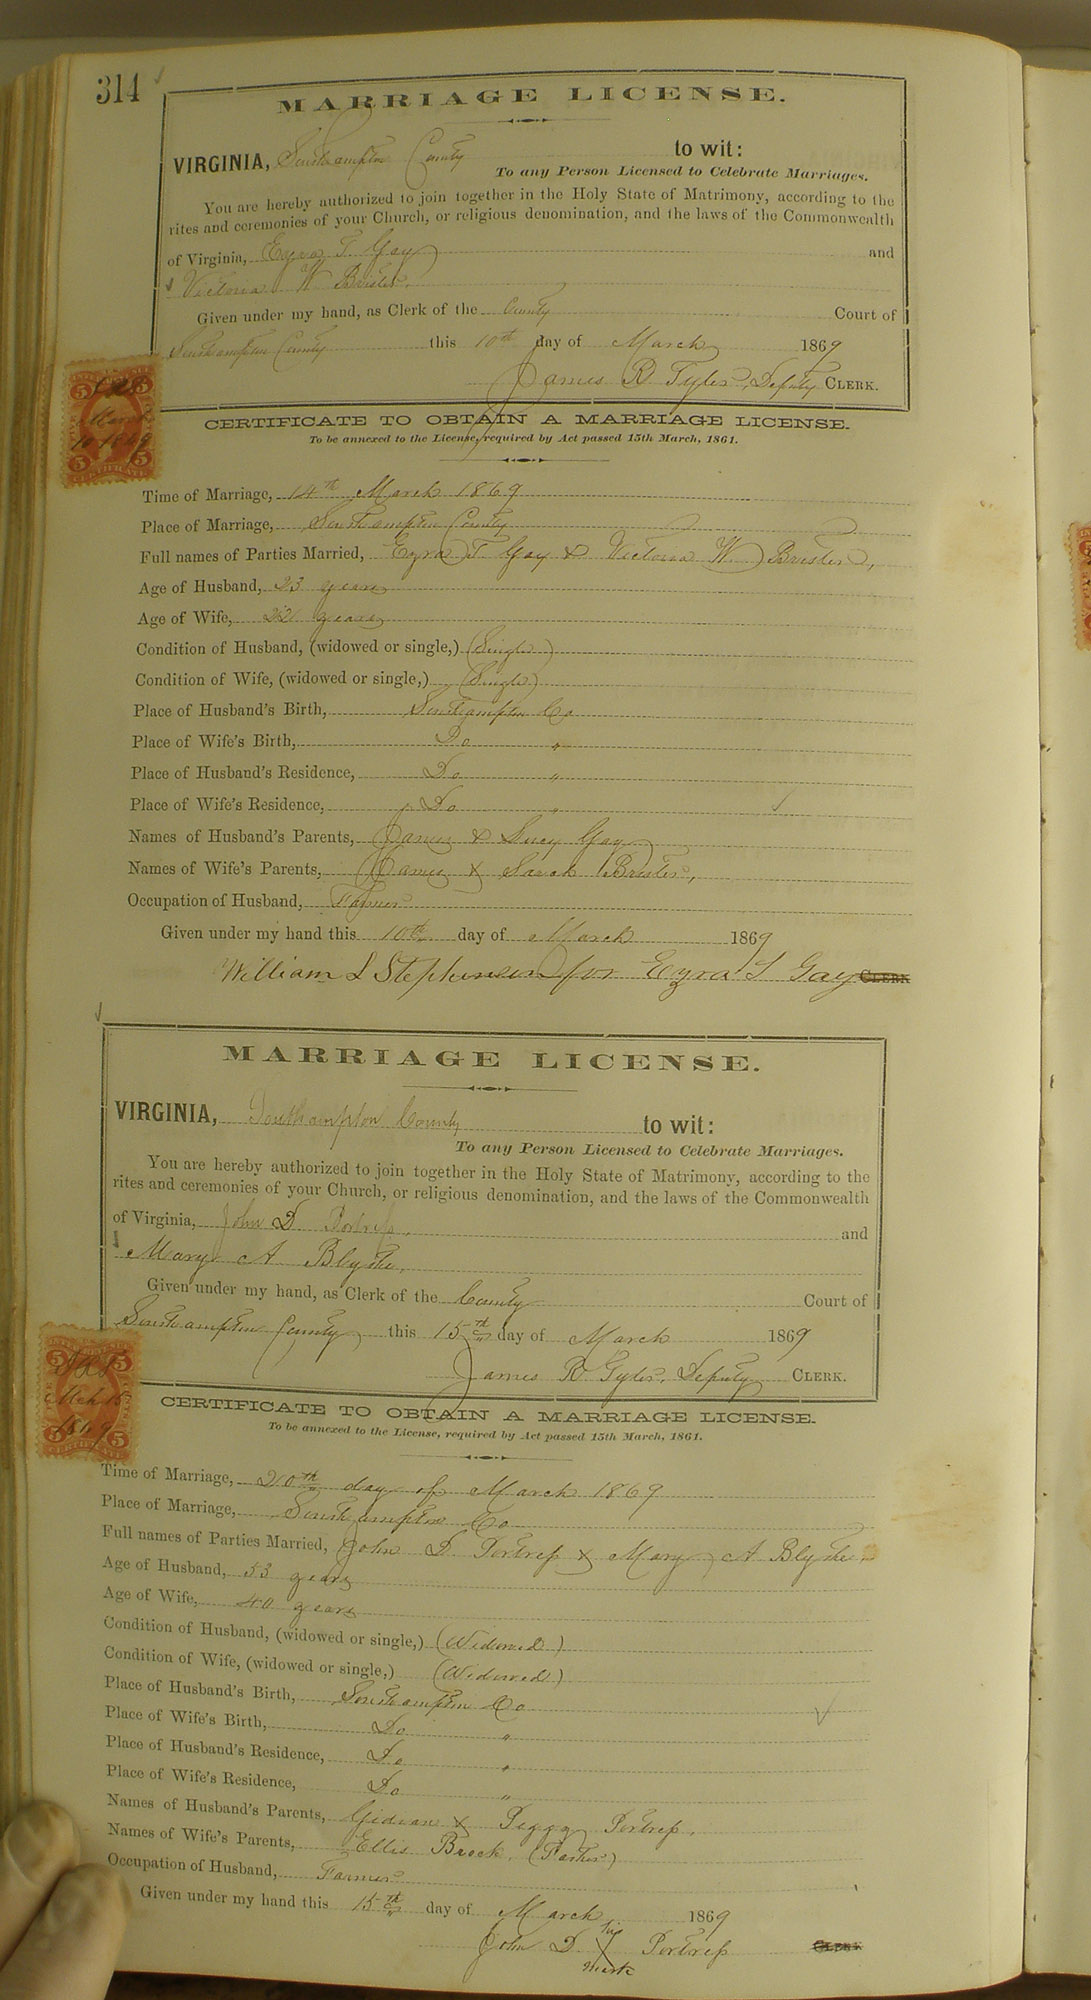 314
MARRIAGE LICENSE.
VIRGINIA, Southampton County to wit:
To any Person Licensed to Celebrate Marriages.
You are hereby authorized to join together in the Holy State of Matrimony, according to the
rites and ceremonies of your Church, or religious denomination, and the laws of the Commonwealth
of Virginia, Ezra T. Gay and
Victoria W Brister.
Given under my hand, as Clerk of the County Court of
Southampton County this 10th day of March 1869
James R Tyler, Deputy CLERK.
5 5
March
10 1869
5 5
CERTIFICATE
CERTIFICATE TO OBTAIN A MARRIAGE LICENSE.
To be annexed to the License, required by Act passed 15th March, 1861.
Time of Marriage, 14th March 1869
Place of Marriage, Southampton County
Full names of Parties Married, Ezra T Gay & Victoria W. Brister,
Age of Husband, 23 years
Age of Wife, 22 years
Condition of Husband, (widowed or single,) (Single)
Condition of Wife, (widowed or single,) (Single)
Place of Husband's Birth, Southampton Co
Place of Wife's Birth, Do "
Place of Husband's Residence, Do "
Place of Wife's Residence, Do "
Names of Husband's Parents, James & Lucy Gay
Names of Wife's Parents, James & Sarah Brister,
Occupation of Husband, Farmer
Given under my hand this 10th day of March 1869
William L Stephenson for Ezra T Gay CLERK
MARRIAGE LICENSE.
VIRGINIA, Southampton County to wit:
To any Person Licensed to Celebrate Marriages.
You are hereby authorized to join together in the Holy State of Matrimony, according to the
rites and ceremonies of your Church, or religious denomination, and the laws of the Commonwealth
of Virginia, John D Portress, and
Mary A Blythe,
Given under my hand, as Clerk of the County Court of
Southampton County this 15th day of March 1869
James R Tyler, Deputy CLERK.
5 5
Mch 15
1869
5 5
CERTIFICATE
CERTIFICATE TO OBTAIN A MARRIAGE LICENSE.
To be annexed to the License, required by Act passed 15th March, 1861.
Time of Marriage, 20th day of March 1869
Place of Marriage, Southampton Co
Full names of Parties Married, John D Portress & Mary A Blythe
Age of Husband, 53 years
Age of Wife, 40 years
Condition of Husband, (widowed or single,) (Widowed)
Condition of Wife, (widowed or single,) (Widowed)
Place of Husband's Birth, Southampton Co
Place of Wife's Birth, Do "
Place of Husband's Residence, Do "
Place of Wife's Residence, Do "
Names of Husband's Parents, Gidean & Peggy Portress.
Names of Wife's Parents, Ellis Brock (Father)
Occupation of Husband, Farmer
Given under my hand this 15th day of March 1869
his
John D. X Portress CLERK
mark